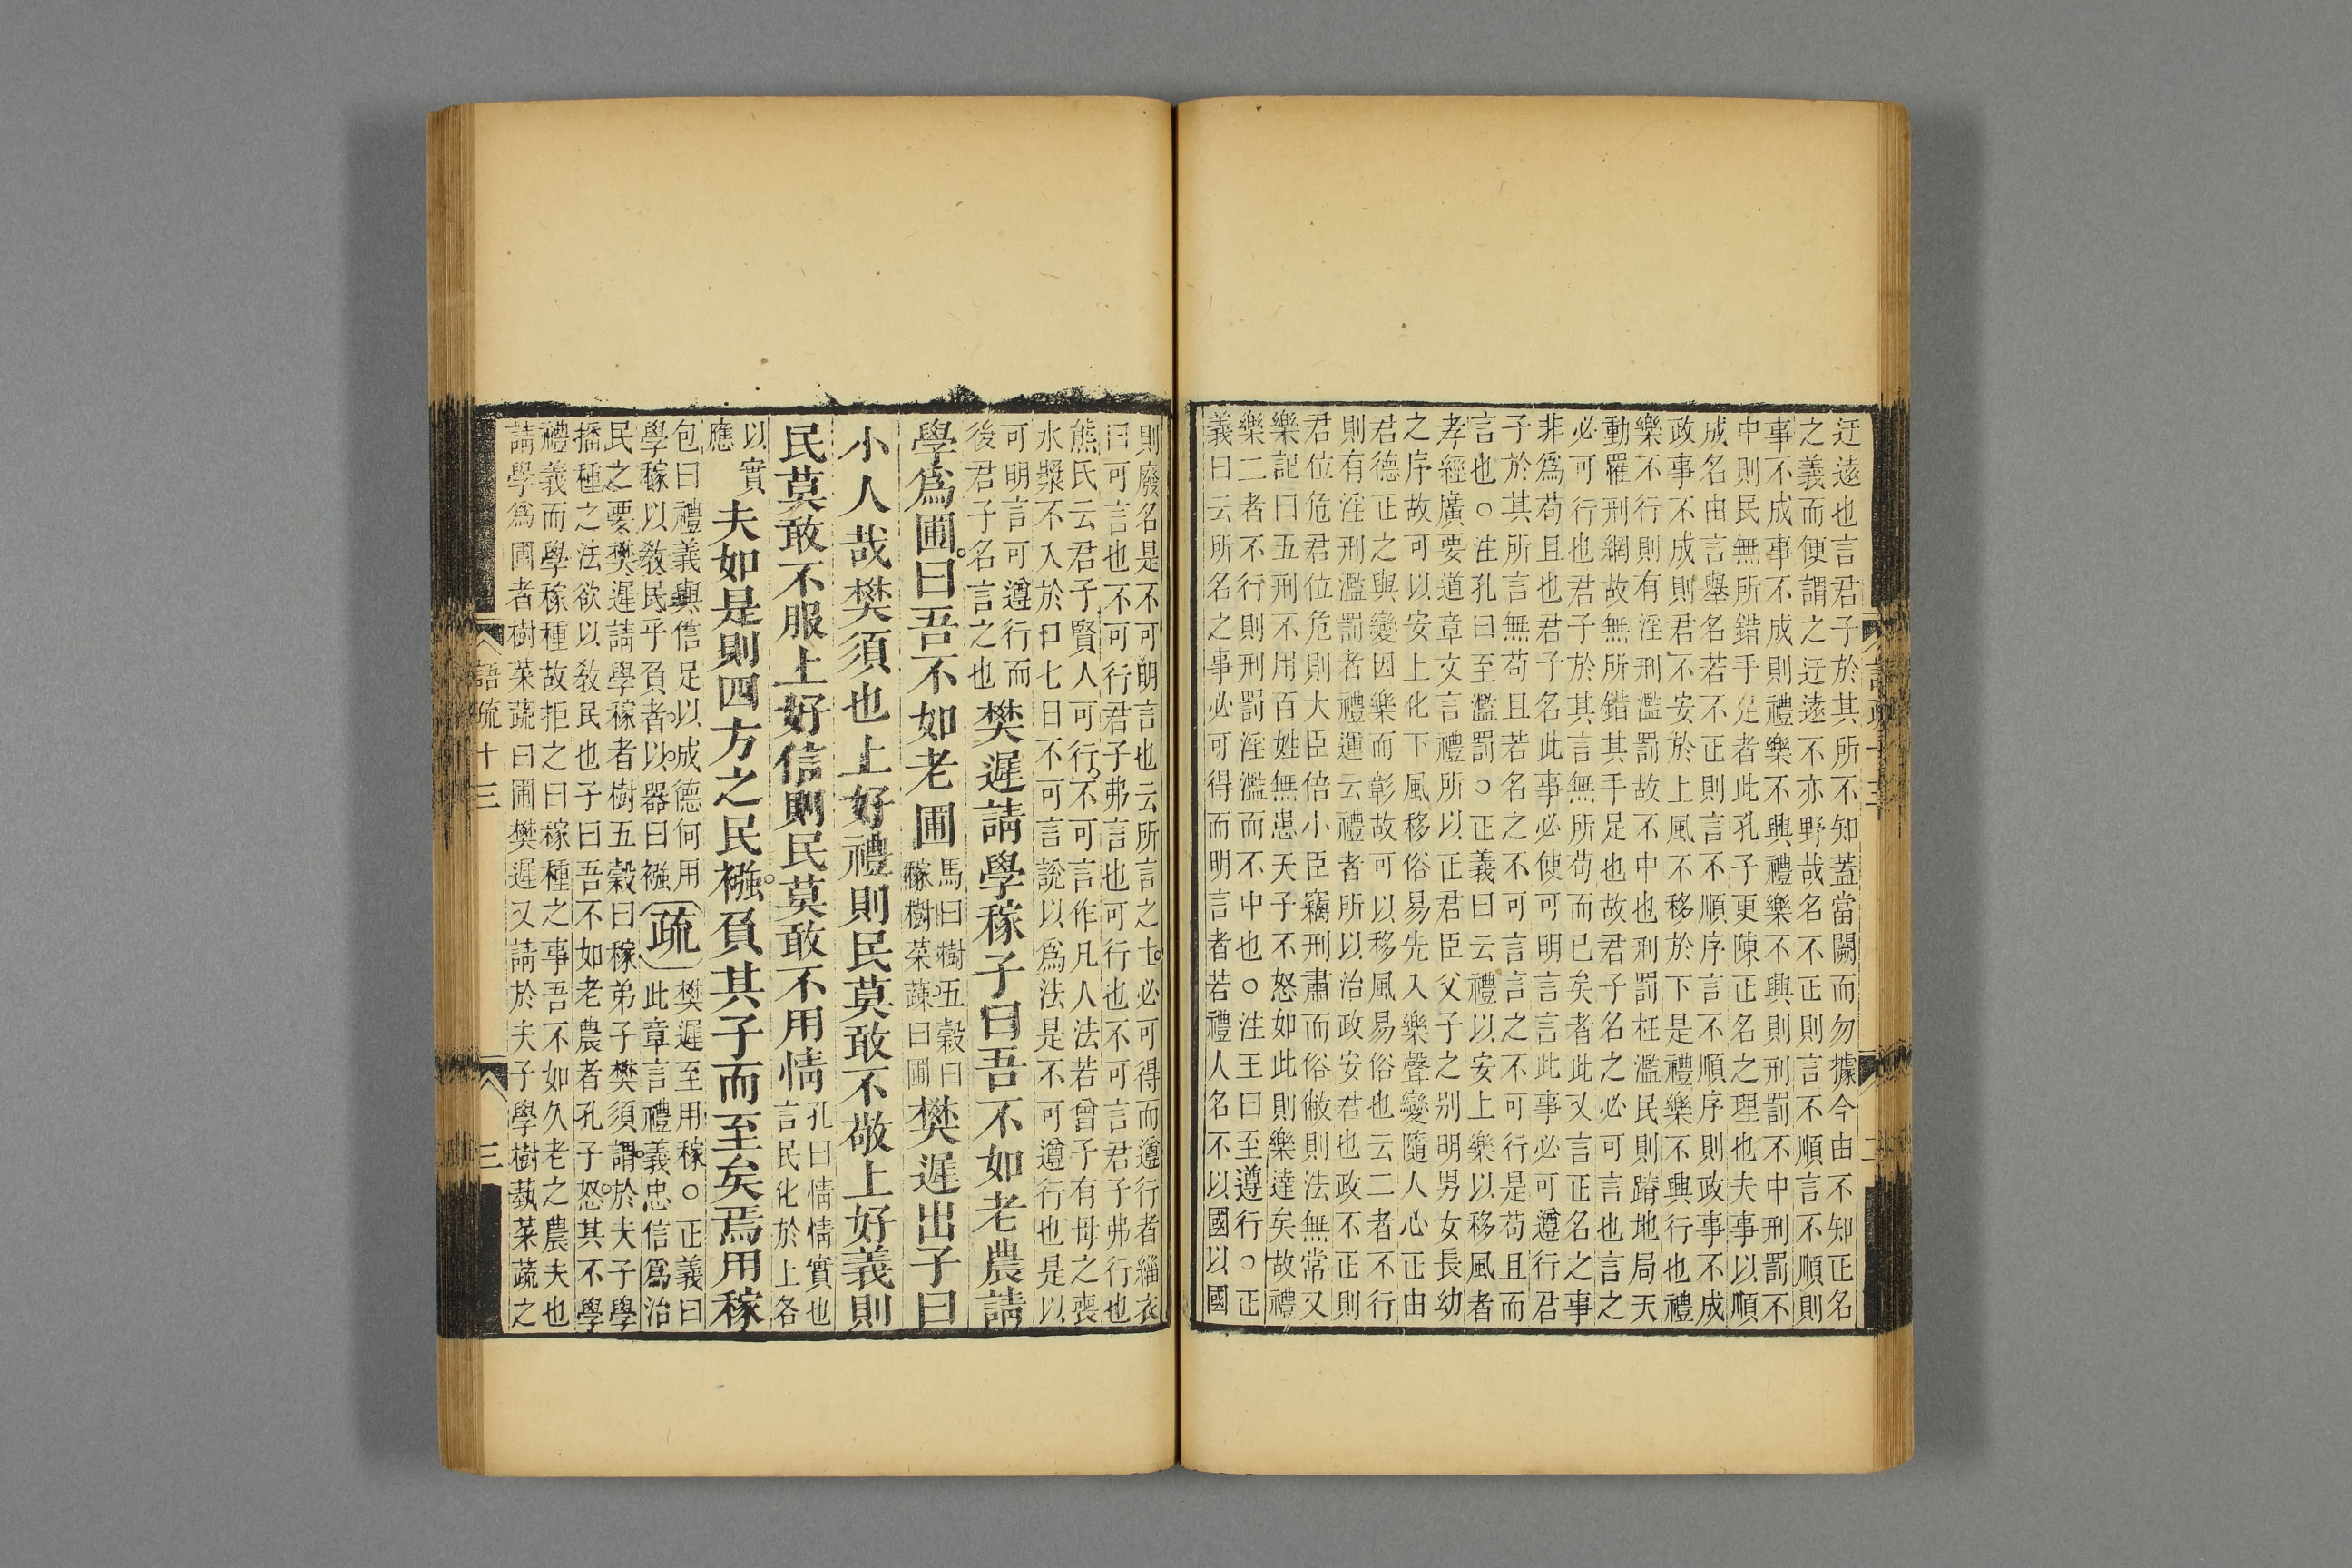 迂遠也言君子於其所不知蓋當闕而勿據今由不知正名
之義而便謂之迂遠不亦野哉名不正則言不順言不順則
事不成事不成則禮樂不興禮樂不興則刑罰不中刑罰不
中則民無所錯手足者此孔子更陳正名之理也夫事以順
成名由言舉名若不正則言不順序言不順序則政事不成
政事不成則君不安於上風不移於下是禮樂不興行也禮
樂不行則有淫刑濫罰故不中也刑罰枉濫民則蹐地局天
動罹刑網故無所錯其手足也故君子名之必可言也言之
必可行也君子於其言無所苟而已矣者此又言正名之事
非爲苟且也君子名此事必使可明言言此事必可遵行君
子於其所言無苟且若名之不可言言之不可行是苟且而
言也○注孔曰至濫罰○正義曰云禮以安上樂以移風者
孝經廣要道章文言禮所以正君臣父子之别明男女長幼
之序故可以安上化下風移俗易先入樂聲變隨人心正由
君德正之與變因樂而彰故可以移風易俗也云二者不行
則有淫刑濫罰者禮運云禮者所以治政安君也政不正則
君位危君位危則大臣倍小臣竊刑肅而俗敝則法無常又
樂記曰五刑不用百姓無患天子不怒如此則樂達矣故禮
樂二者不行則刑罰淫濫而不中也○注王曰至遵行○正
義曰云所名之事必可得而明言者若禮人名不以國以國
則廢名是不可明言也云所言之士必可得而遵行者緇衣
曰可言也不可行君子弗言也可行也不可言君子弗行也
熊氏云君子賢人可行不可言作凡人法若曾子有母之喪
水漿不入於口七日不可言說以爲法是不可遵行也是以
可明言可遵行而
後君子名言之也
樊遲請學稼子曰吾不如老農請
學爲圃曰吾不如老圃
馬曰樹五穀曰
稼樹菜蔬曰圃
樊遲出子曰
小人哉樊須也上好禮則民莫敢不敬上好義則
民莫敢不服上好信則民莫敢不用情
孔曰情情實也
言民化於上各
以實
應
夫如是則四方之民襁負其子而至矣焉用稼
包曰禮義與信足以成德何用
學稼以敎民乎負者以器曰襁
疏
樊遲至用稼○正義曰
此章言禮義忠信爲治
民之要樊遲請學稼者樹五穀曰稼弟子樊須謂於夫子學
播種之法欲以敎民也子曰吾不如老農者孔子怒其不學
禮義而學稼種故拒之曰稼種之事吾不如久老之農夫也
請學爲圃者樹菜蔬曰圃樊遲又請於夫子學樹蓺菜蔬之
語疏十三
三